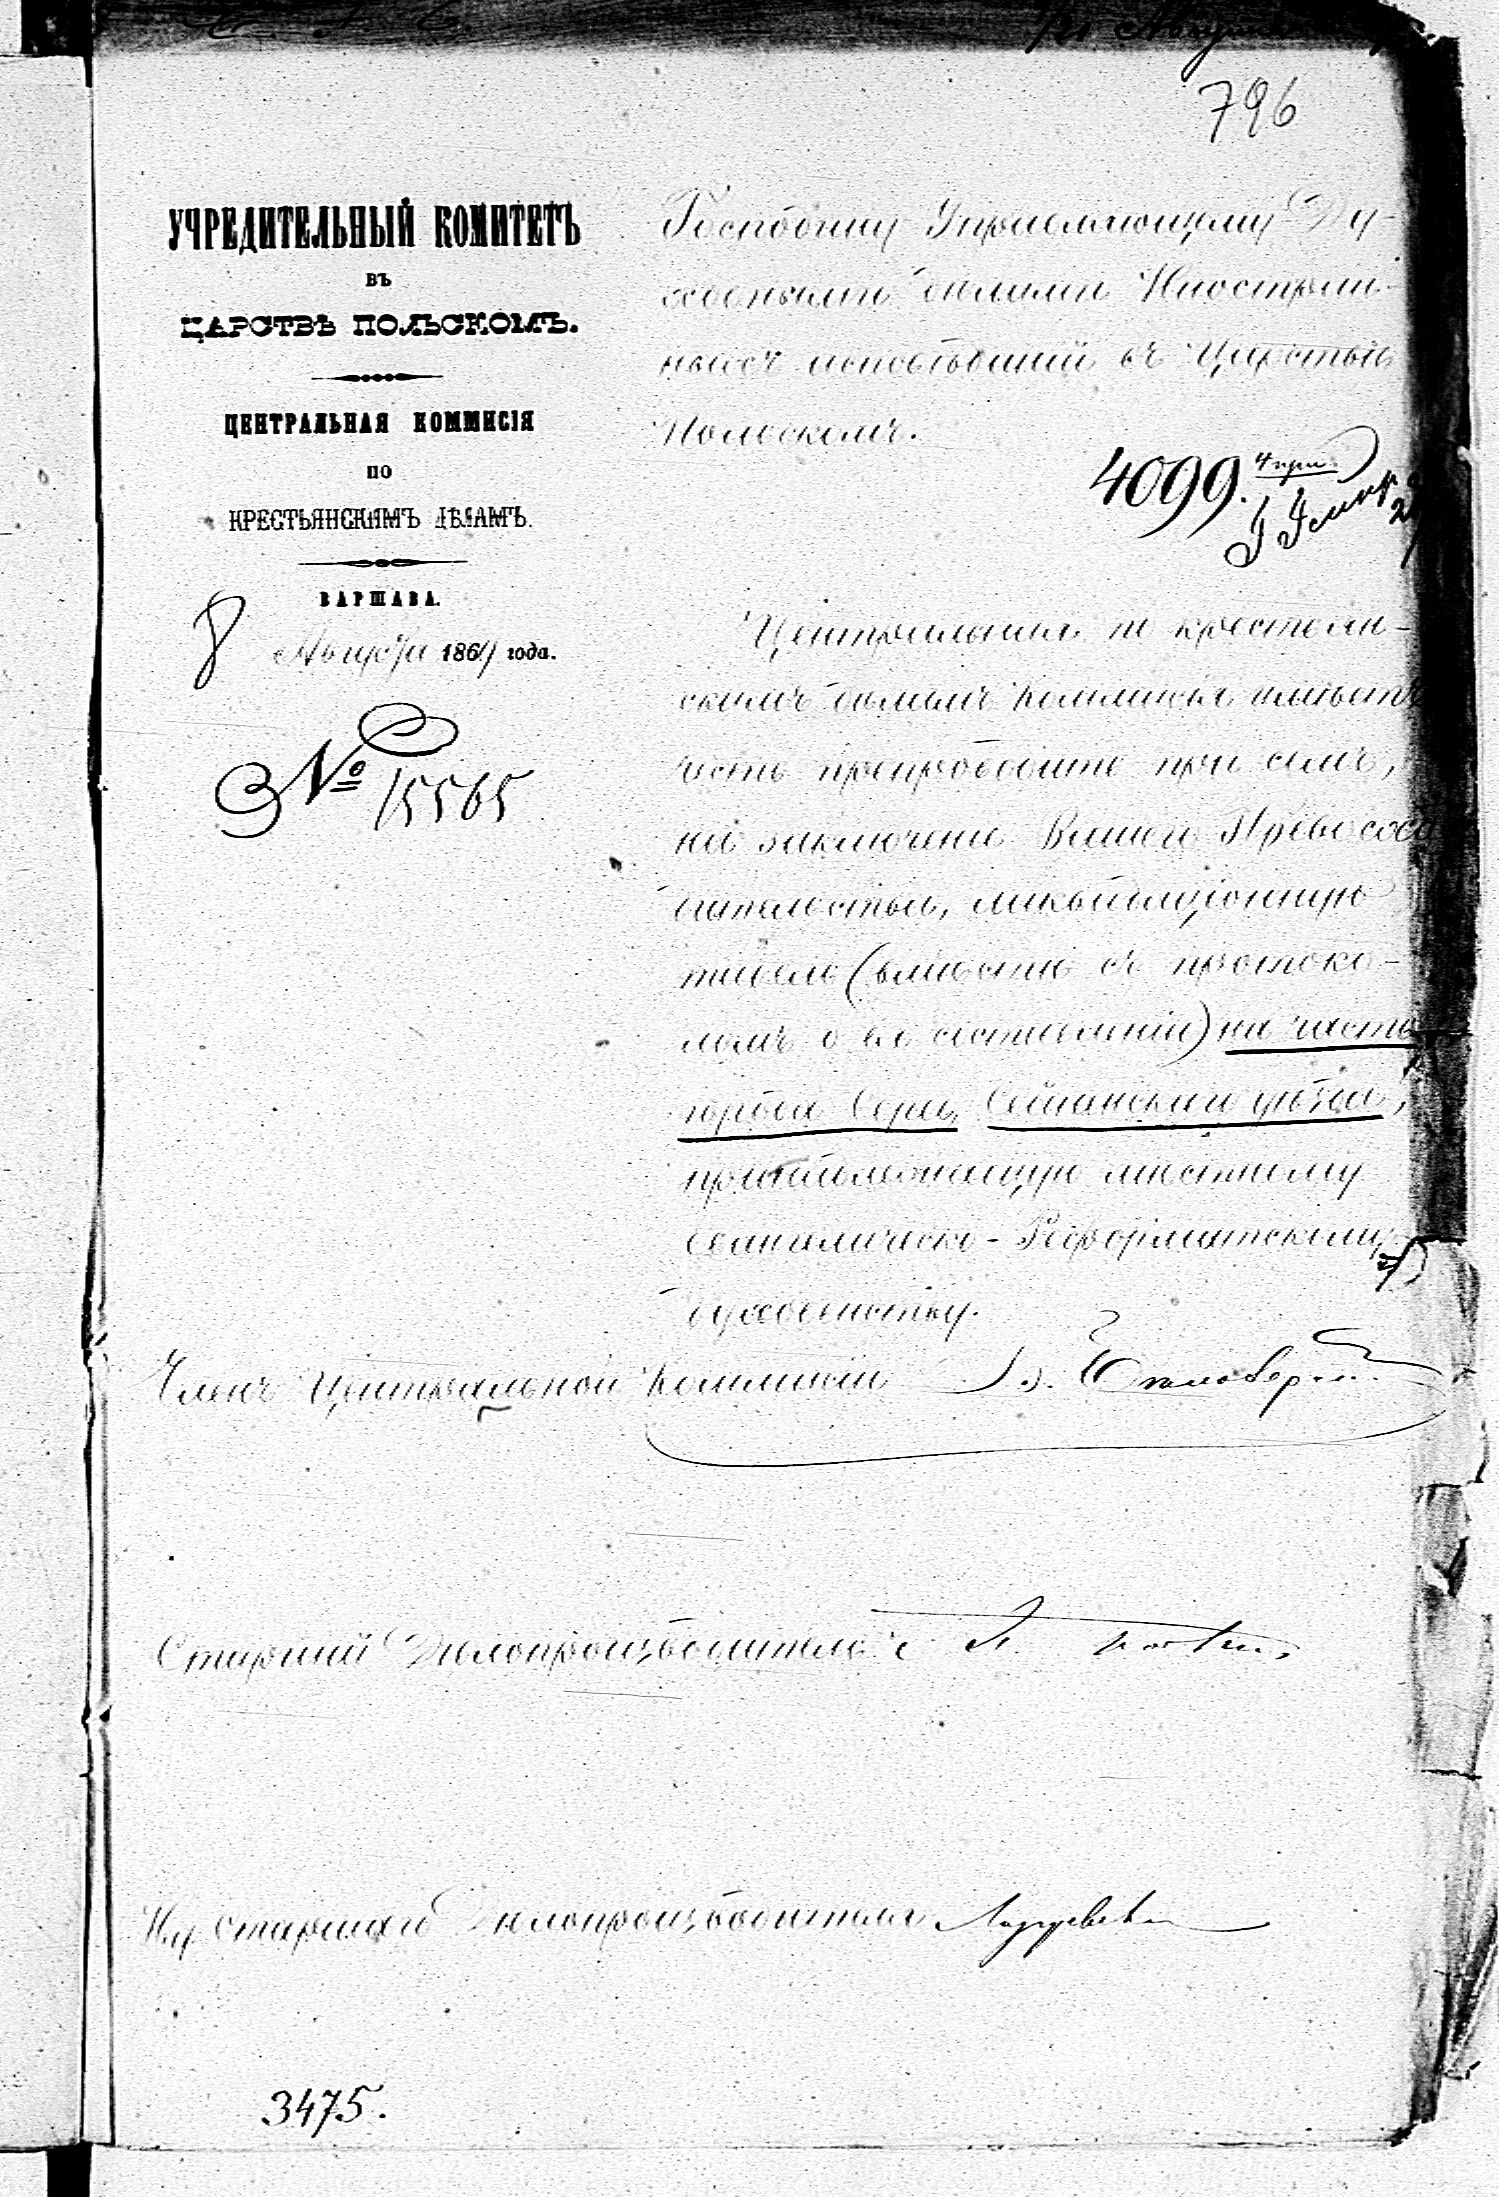 796
УЧРЕДИТЕЛЬНЫЙ КОМИТЕТЪ
ВЪ
ЦАРСТВѢ ПОЛЬСКОМЪ.
ЦЕНТРАЛЬНАЯ КОММИСІЯ
ПО
КРЕСТЬЯНСКИМЪ ДѢЛАМЪ.
ВАРШАВА.
8 Августа 1869 года.
№ 15565
Господину Управляющему Ду-
ховными дѣлами Иностран-
ныхъ исповѣданий въ Царствѣ
Польскомъ.
4099. 4 прил.
Центральная по крестьян-
скимъ дѣламъ Коммисія имѣетъ
честь препроводить при семъ,
на заключеніе Вашего Превосхо
дительства, ликвидаціонную
табель (вмѣстѣ съ протоко-
ломъ о ея составленіи) на часть
города Сереи, Сейнскаго уѣзда,
принадлежащую мѣстному
Евангелическо-Реформатскому
духовенству.
Членъ Центральной Коммисіи
Старший Дѣлопроизводитель
За Старшаго Дѣлопроизводителя
3475.